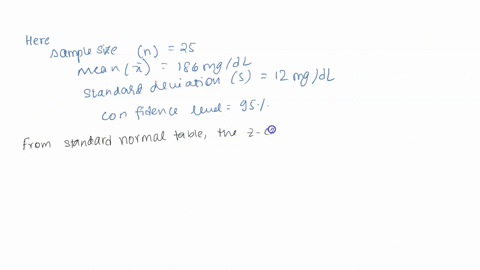 Here
sample size (n) = 25
mean (x̄) = 186 mg/dL
standard deviation (s) = 12 mg/dL
confidence level = 95%.
From standard normal table, the z-